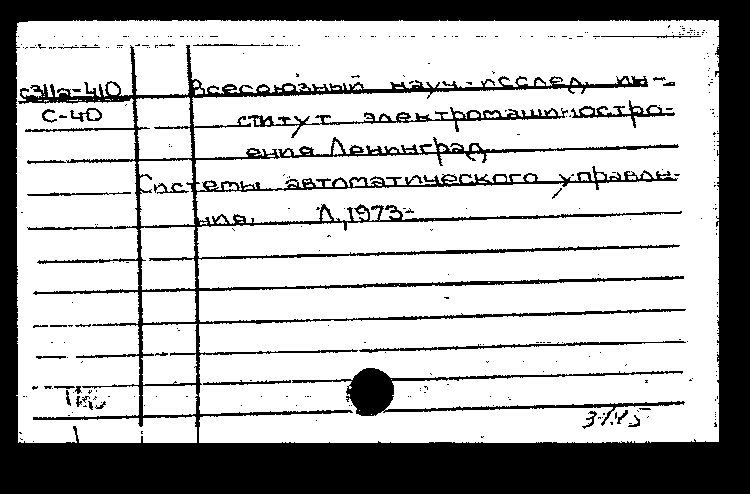 с311а-410
С-40
Всесоюзный науч.-исслед. ин-
ститут электромашиностро-
ения. Ленинград.
Системы автоматического управле-
ния. Л., 1973-